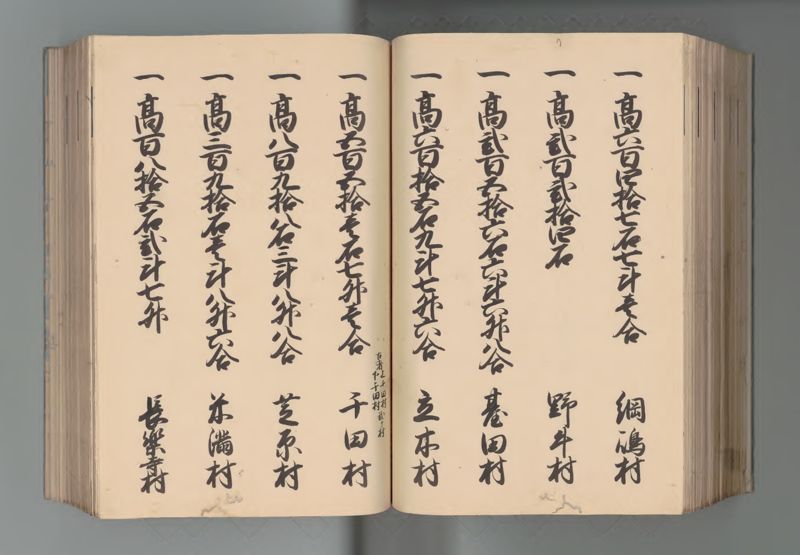 一高六百四拾七石七斗壱合 綱嶋村
一高弐百弐拾四石 野牛村
一高弐百五拾六石六斗六升八合 䑓田村
一高六百拾五石九斗七升六合 立木村
一高五百五拾壱石七升壱合 千田村
古者上千田村
下千田村
一高八百九拾八石三斗八升八合 芝原村
一高三百九拾石壱斗八升六合 米満村
一高百八拾五石弐斗七升 長楽寺村